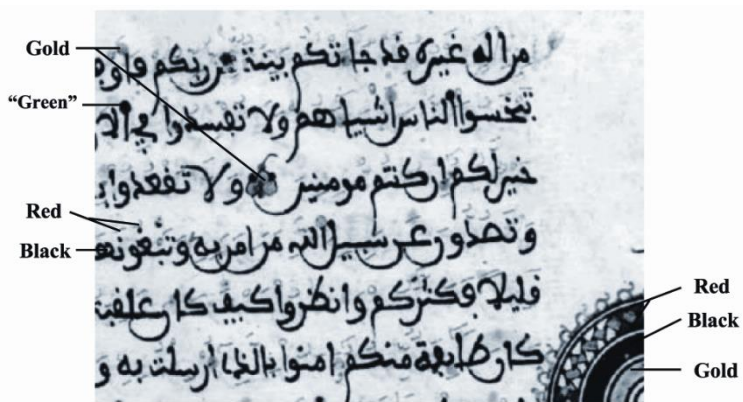 Gold
“Green”
Red
Black
من اله غيره قد جاتكم بينة من ربكم فاو
تبخسوا الناس اشياهم ولا تفسدوا في الار
خير لكم ان كنتم مومنين ولا تقعدوا ب
وتصدون عن سبيل الله من امن به وتبغونها
قليلا فكثركم وانظروا كيف كان عقبة
كان طايفة منكم امنوا بالذي ارسلت به و
Red
Black
Gold